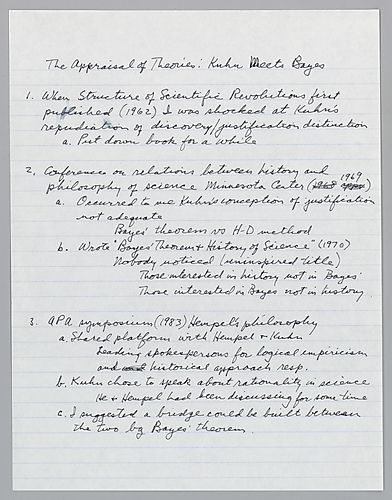 The Appraisal of Theories: Kuhn Meets Bayes
1. When Structure of Scientific Revolutions first
published (1962) I was shocked at Kuhn's
repudiation of discovery/justification distinction
a. Put down book for a while
2. Conference on relations between history and
philosophy of science Minnesota Center (1969)
a. Occurred to me Kuhn's conception of justification
not adequate
Bayes' theorem vs H-D method
b. Wrote "Bayes' Theorem & History of Science" (1970)
Nobody noticed (uninspired title)
Those interested in history not in Bayes
Those interested in Bayes not in history
3. APA symposium (1983) Hempel's philosophy
a. Shared platform with Hempel & Kuhn
Leading spokespersons for logical empiricism
and historical approach resp.
b. Kuhn chose to speak about rationality in science
He & Hempel had been discussing for some time
c. I suggested a bridge could be built between
the two by Bayes' theorem.